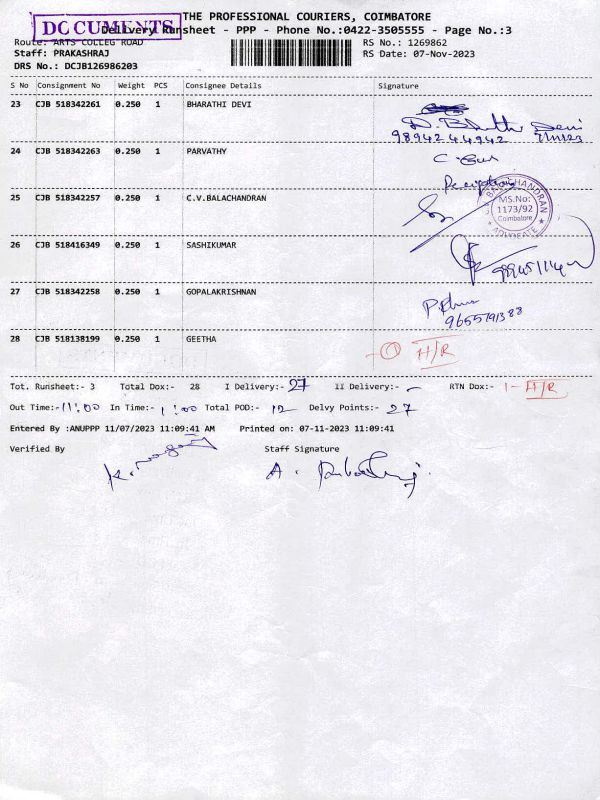 THE PROFESSIONAL COURIERS, COIMBATORE
DOCUMENTS
Delivery Runsheet - PPP - Phone No.:0422-3505555 - Page No.:3
Route: ARTS COLLEG ROAD RS No.: 1269862
Staff: PRAKASHRAJ RS Date: 07-Nov-2023
DRS No.: DCJB126986203
S No Consignment No Weight PCS Consignee Details Signature
23 CJB 518342261 0.250 1 BHARATHI DEVI
D. Bharathi Devi
9894244942 7/11/23
24 CJB 518342263 0.250 1 PARVATHY
25 CJB 518342257 0.250 1 C.V.BALACHANDRAN
BALACHANDRAN
MS.No:
1173/92
Coimbatore
ADVOCATE
26 CJB 518416349 0.250 1 SASHIKUMAR
27 CJB 518342258 0.250 1 GOPALAKRISHNAN
9655791388
28 CJB 518138199 0.250 1 GEETHA
- 1 H/R
Tot. Runsheet:- 3 Total Dox:- 28 I Delivery:- 27 II Delivery:- - RTN Dox:- 1- H/R
Out Time:- 11:00 In Time:- 1:00 Total POD:- 12 Delvy Points:- 27
Entered By :ANUPPP 11/07/2023 11:09:41 AM Printed on: 07-11-2023 11:09:41
Verified By Staff Signature